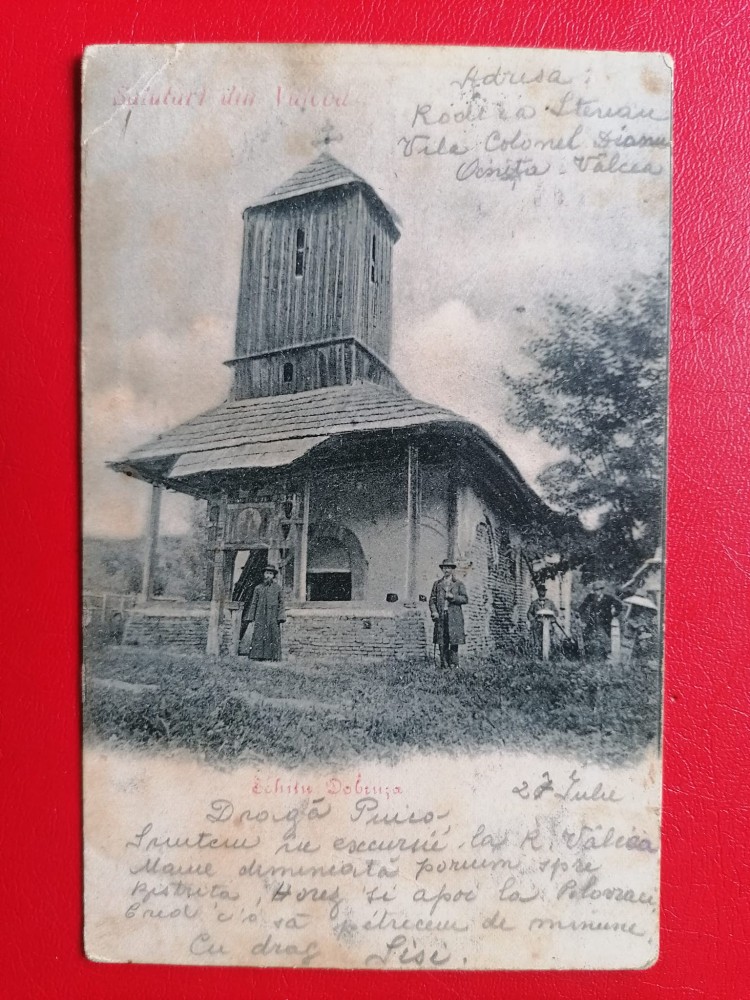 Salutări din Vâlcea
Adresa:
Rodica Sterian
Vila Colonel Dianu
Ocnița Vâlcea
Schitu Dobruşa
27 Iulie
Dragă Puico
Suntem in excursie la R. Vâlcea
Maine dimineată pornim spre
Bistrita, Horez si apoi la Polovraci
Cred c'o să petrecem de minune.
Cu drag Sisi.